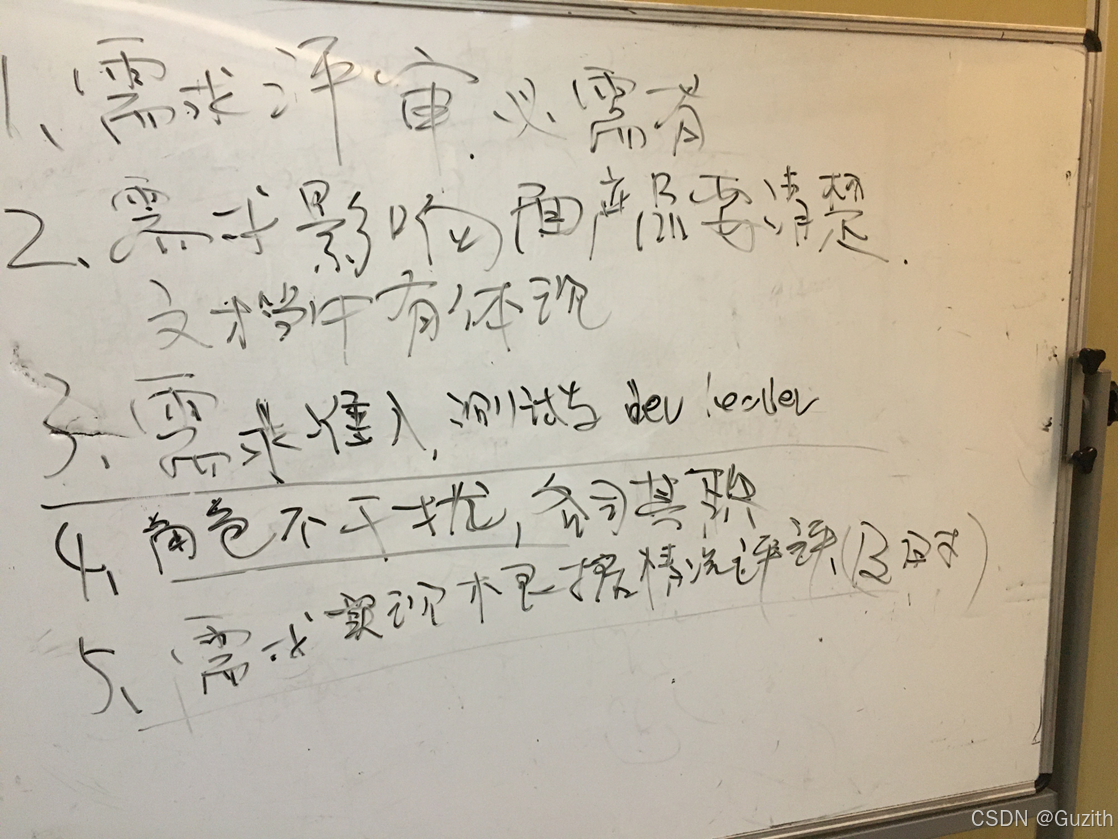 1、需求评审必需有
2、需求影响面产品要清楚.
文档中有体现
3、需求准入,测试与 dev leader
4、角色不干扰,各司其职
5、需求实现根据情况评评(及时)
CSDN @Guzith